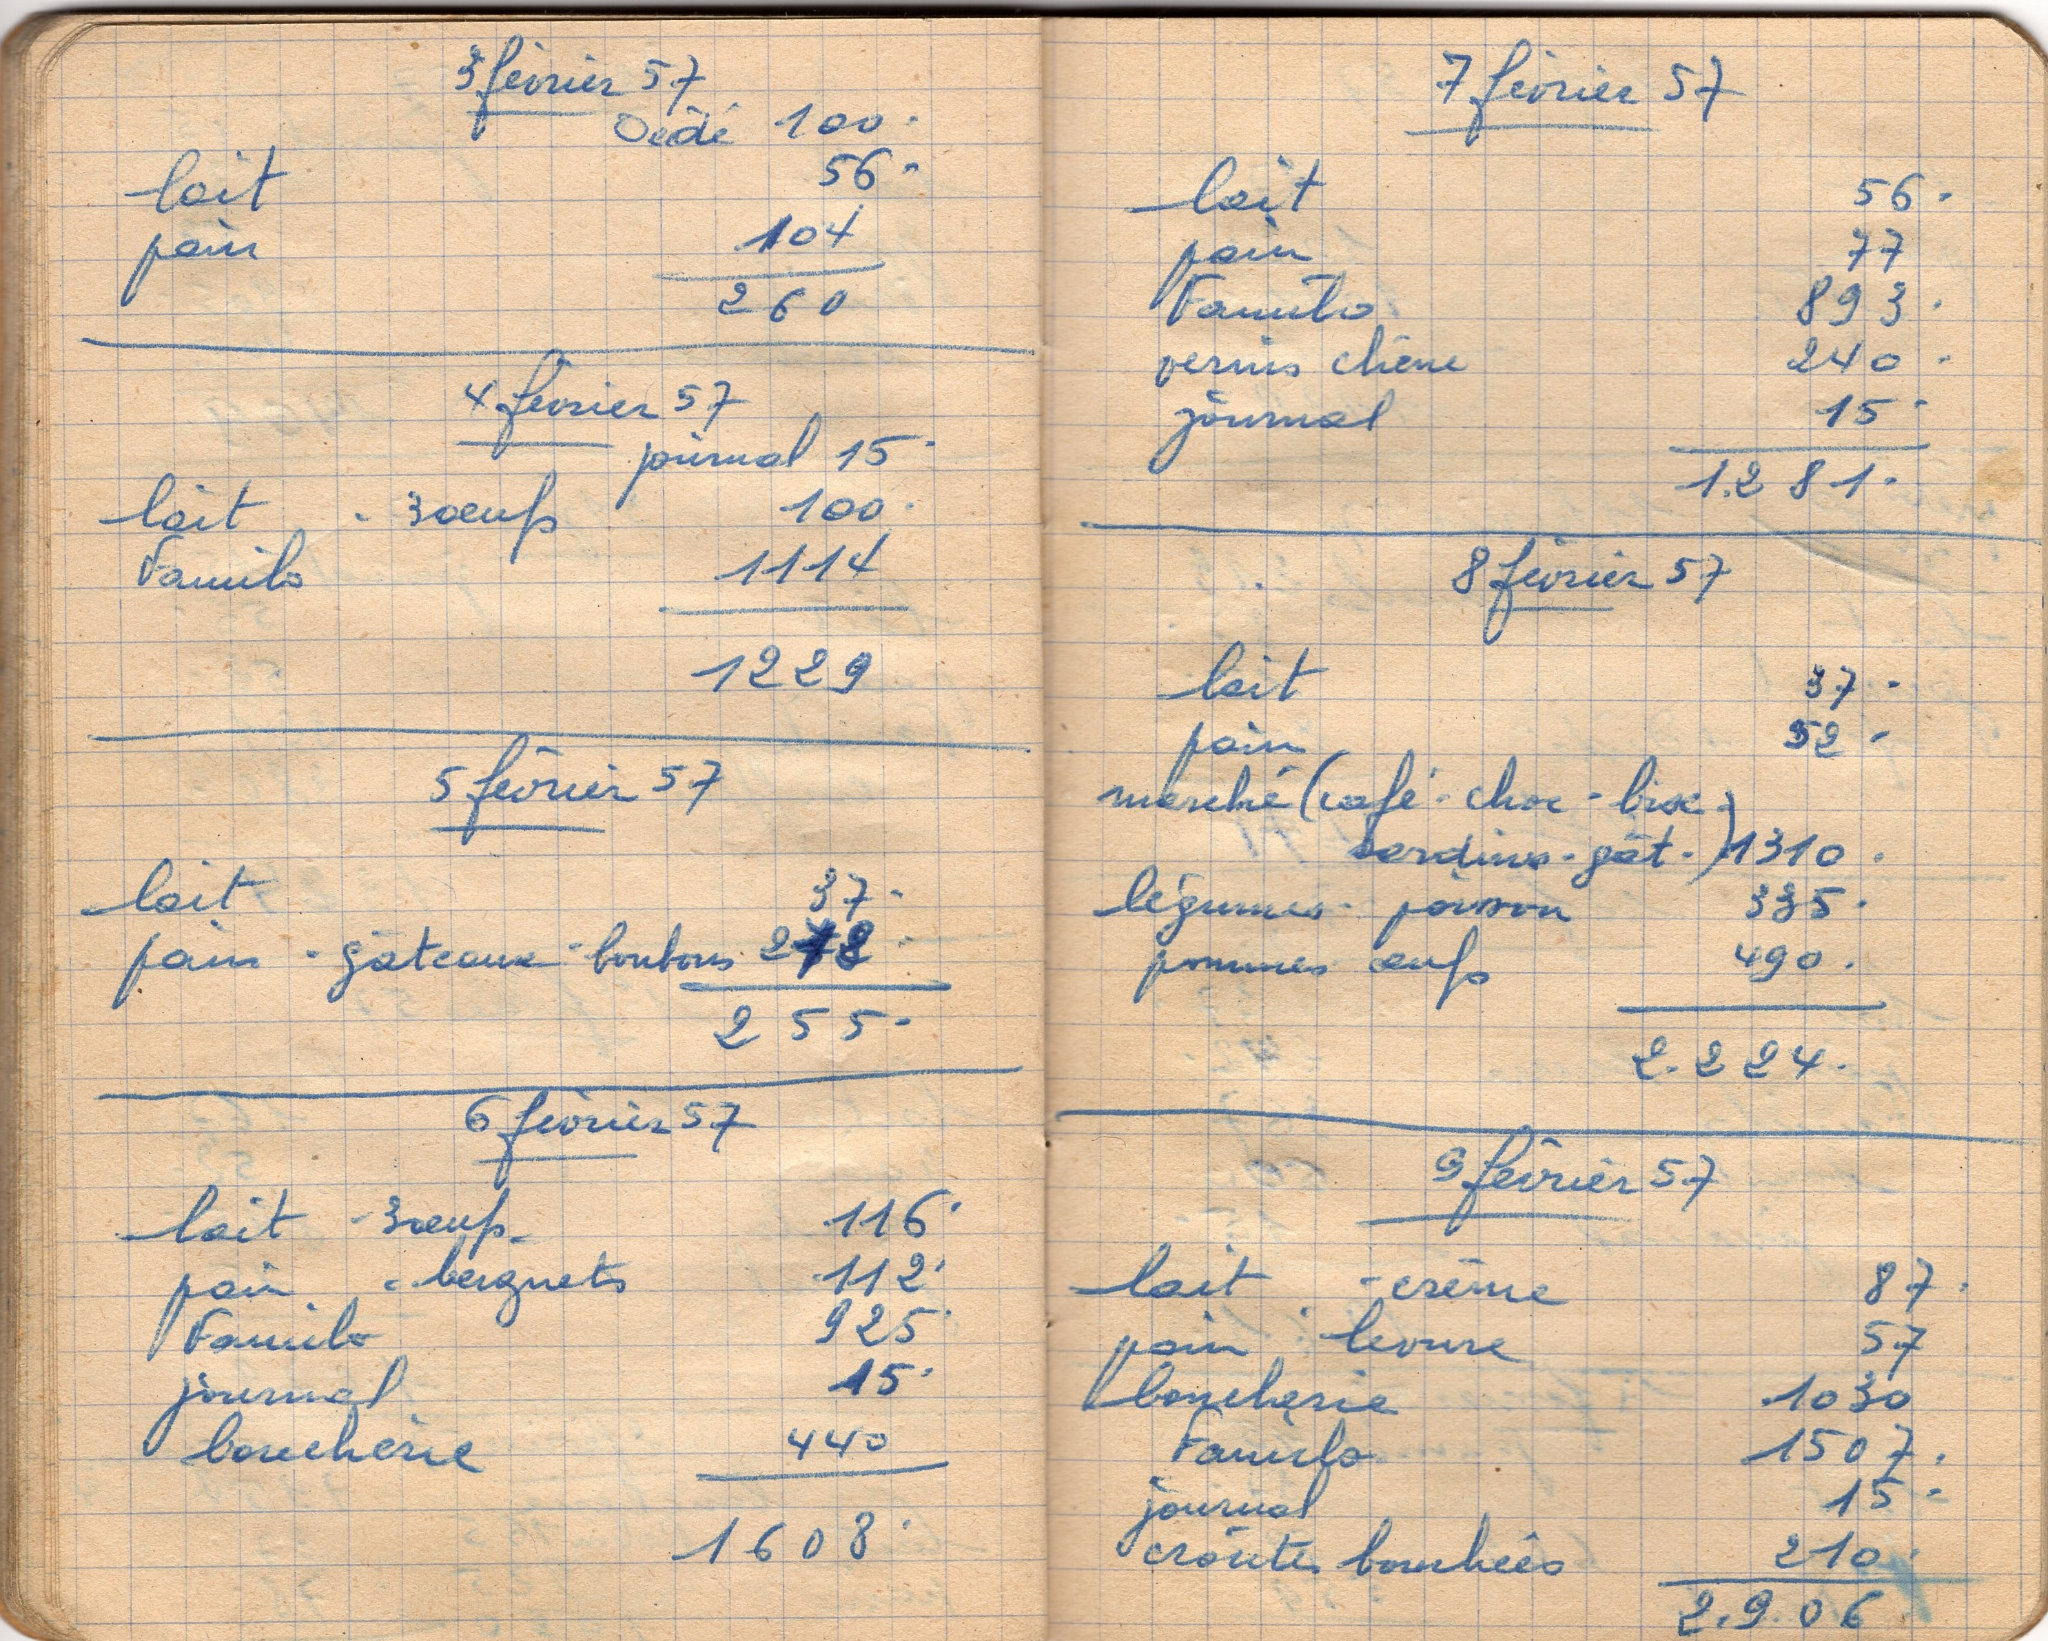 3 février 57
Dédé 100.
lait 56.
pain 104
260
4 février 57
journal 15.
lait - 3 œufs 100.
Familo 1114
1229
5 février 57
lait 37.
pain - gâteaux - bonbons 218.
255.
6 février 57
lait - 3 œufs 116.
pain - beignets 112.
Familo 925.
journal 15.
boucherie 440
1608.
7 février 57
lait 56.
pain 77
Familo 893.
vernis chêne 240.
journal 15.
1.281.
8 février 57
lait 37.
pain 52.
marché (café - choc - bisc -
sardines - gât.) 1310.
légumes - poisson 335.
pommes œufs 490.
2.224.
9 février 57
lait - crème 87.
pain - levure 57
boucherie 1030
Familo 1507.
journal 15.
croûtes bouchées 210.
2.9.06